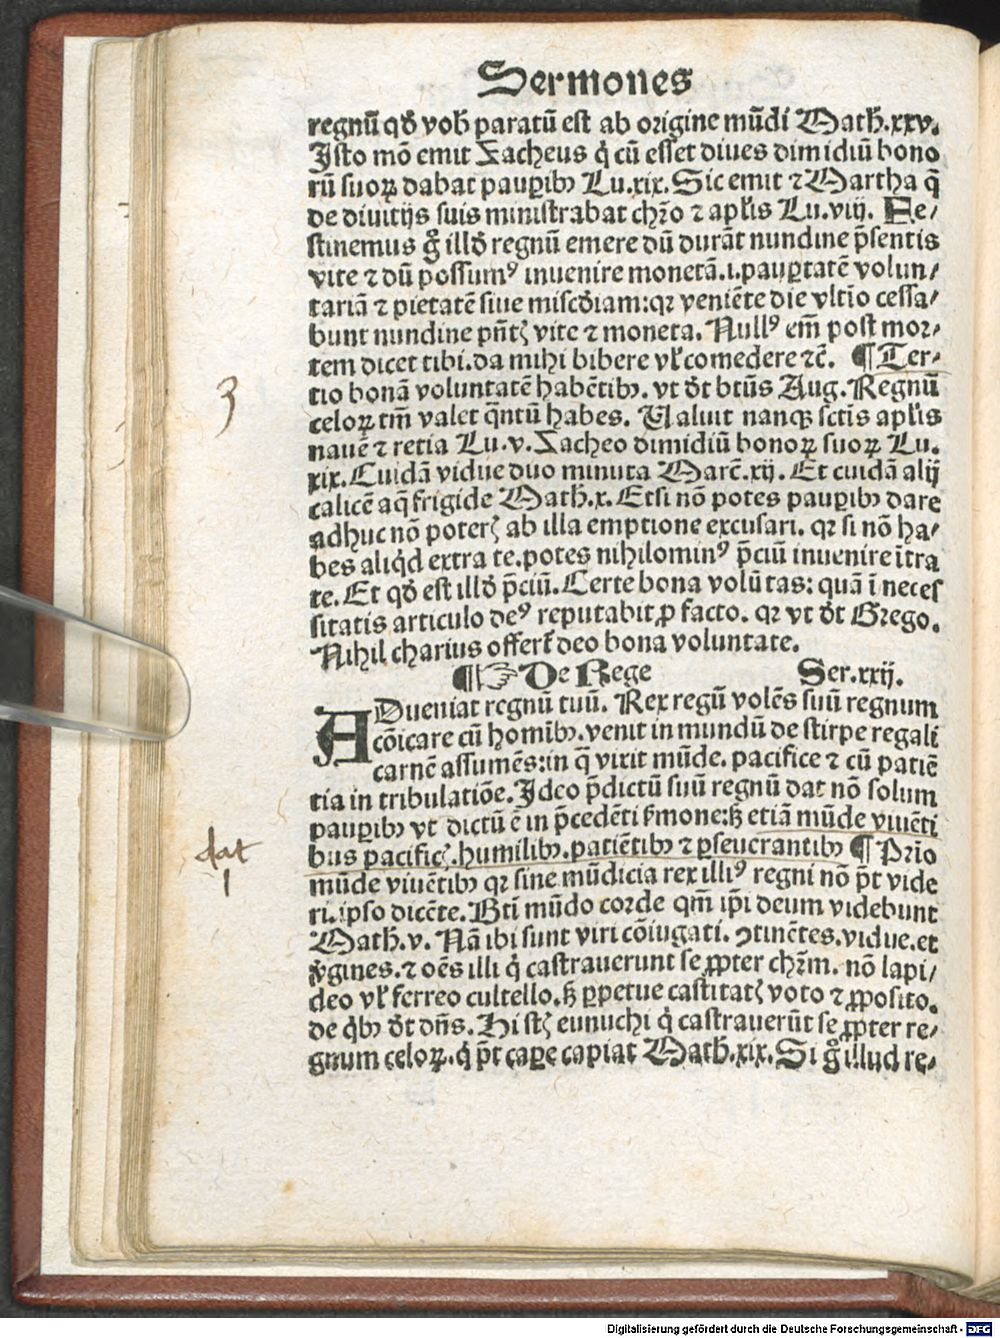 Sermones
regnū qď vob̄ paratū est ab origine mūdi Math̄.xxv.
Isto mō emit Zacheus q̇ cū esset diues dimidiū bono
rū suoꝝ dabat pauꝑibꝰ Lu.xix. Sic emit ⁊ Martha q̄
de diuitijs suis ministrabat chr̄o ⁊ apl̄is Lu.viij. Fe/
stinemus g̊ illď regnū emere dū durāt nundine p̄sentis
vite ⁊ dū possumꝰ inuenire monetā.i.pauꝑtatē volun/
tariā ⁊ pietatē siue misc̄diam:qꝛ veniēte die vltīo cessa/
bunt nundine pn̄tꝭ vite ⁊ moneta. Nullꝰ em̄ post mor⸗
tem dicet tibi.da mihi bibere vl̓ comedere ⁊c̄. ¶ Ter⸗
tio bonā voluntatē habētibꝰ. vt ďt btūs Aug. Regnū
celoꝝ tm̄ valet q̄ntū habes. Ualuit nanqꝫ sctīs apl̄is
nauē ⁊ retia Lu.v. Zacheo dimidiū bonoꝝ suoꝝ Lu.
xix. Cuidā vidue duo minuta Marc̄.xij. Et cuidā alij
calicē aq̄ frigide Math̄.x. Etsi nō potes pauꝑibꝰ dare
adhuc nō poterꝭ ab illa emptione excusari. qꝛ si nō ha/
bes aliq̇d extra te.potes nihilominꝰ p̄ciū inuenire ītra
te. Et qď est illď p̄ciū. Certe bona volūtas: quā ī neces
sitatis articulo deꝰ reputabit ꝓ facto. qꝛ vt ďt Grego.
Nihil charius offert̄ deo bona voluntate.
¶ ☞ De Rege Ser.xxij.
ADueniat regnū tuū. Rex regū volēs suū regnum
cōicare cū homībꝰ.venit in mundū de stirpe regali
carnē assumēs:in q̄ vixit mūde. pacifice ⁊ cū patiē
tia in tribulatiōe. Ideo p̄dictū suū regnū dat nō solum
pauꝑibꝰ vt dictū ē in p̄cedēti s̓mone:sꝫ etiā mūde viuēti
bus pacificꝭ.humilibꝰ.patiētibꝰ ⁊ ꝑseuerantibꝰ ¶ Prīo
mūde viuētibꝰ qꝛ sine mūdicia rex illiꝰ regni nō p̄t vide
ri.ipso dicēte. Btī mūdo corde qm̄ ip̄i deum videbunt
Math̄.v. Nā ibi sunt viri cōiugati. ꝯtinētes.vidue.et
v̓gines.⁊ oēs illi q̇ castrauerunt se ꝓpter chr̄m. nō lapi/
deo vl̓ ferreo cultello.sꝫ ꝑpetue castitatꝭ voto ⁊ ꝓposito.
de q̇bꝰ ďt dn̄s. Hi stꝭ eunuchi q̇ castrauerūt se ꝓpter re⸗
gnum celoꝝ.q̇ p̄t caꝑe capiat Math̄.xix. Si g̊ illud re⸗
3
dat
1
Digitalisierung gefördert durch die Deutsche Forschungsgemeinschaft - DFG